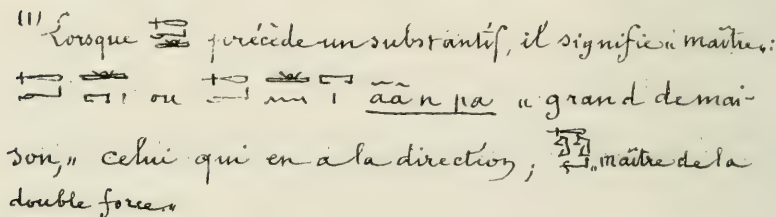 (1) Lorsque précède un substantif, il signifie « maître »:
ou āā n pa « grand de mai-
son, » celui qui en a la direction; « maître de la
double force »